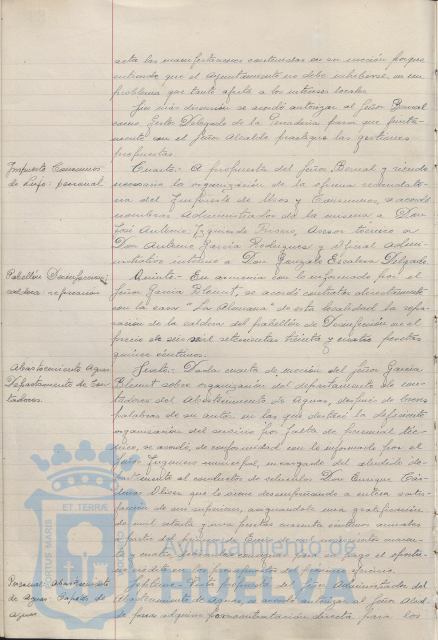 acta las manifestaciones contenidas en su moción porque
entiende que el Ayuntamiento no debe inhibirse en un
problema que tanto afecta a los intereses locales.
Sin más discusión se acordó autorizar al Señor Bernal
como Gestor Delegado de la para que junta-
mente con el Señor Alcalde practique las gestiones
propuestas.
Impuesto Consumos
de Lujo: personal
Cuarto.- A propuesta del Señor Bernal y siendo
necesaria la organización de la oficina recaudato-
ria del Impuesto de Usos y Consumos, se acordó
nombrar Administrador de la misma a Don
José Antonio Izquierdo, Asesor técnico a
Don Antonio García Rodríguez y Oficial Admi-
nistrativo interino a Don Gonzalo Escalera Delgado.
Pabellón Desinfección:
caldera: reparación
Quinto.- En armonía con lo informado por el
Señor García se acordó contratar directamente
con la casa "La Alemana" de esta localidad la repa-
ración de la caldera del pabellón de Desinfección en el
precio de seis mil setecientas treinta y cuatro pesetas
quince céntimos.
Abastecimiento Aguas
Departamento de Con-
tadores.
Sexto.- Dada cuenta de moción del Señor García
sobre organización del departamento de con-
tadores del Abastecimiento de Aguas, después de breves
palabras de su autor en las que destacó la deficiente
organización del servicio por falta de personal téc-
nico, se acordó, de conformidad con lo informado por el
Señor Ingeniero municipal, encargado del aludido de-
partamento al conductor de vehículos Don Enrique
que lo viene desempeñando a entera satis-
facción de sus superiores, asignándole una gratificación
de mil ochenta y una pesetas cincuenta céntimos anuales
a partir del primero de Enero de mil novecientos cuaren-
ta y cuatro
crédito en los presupuestos del próximo ejercicio.
Personal: Abastecimiento
de Aguas
Aguas
Séptimo.- Vista propuesta del Señor Administrador del
Abastecimiento de Aguas, se acordó autorizar al Señor Alcal-
de para adquirir directa para los
ET TERRÆ
PORTUS MARIS
Ayuntamiento de
HUELVA